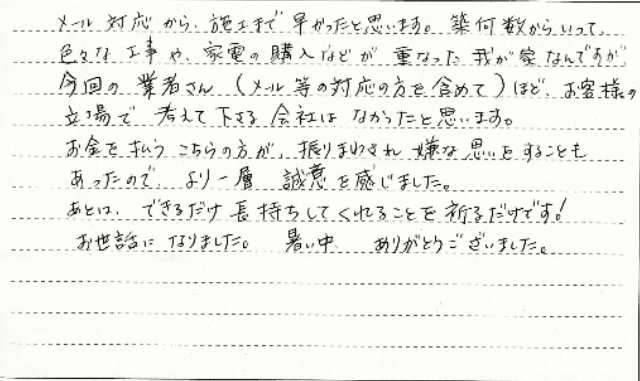 メール対応から、施工まで早かったと思います。築何数からいって、
色々な工事や、家電の購入などが重なった我が家なんですが
今回の業者さん(メール等の対応の方を含めて)ほど、お客様の
立場で考えて下さる会社はなかったと思います。
お金を払うこちらの方が、振りまわされ嫌な思いをすることも
あったので、より一層誠意を感じました。
あとは、できるだけ長持ちしてくれることを祈るだけです!
お世話になりました。暑い中、ありがとうございました。